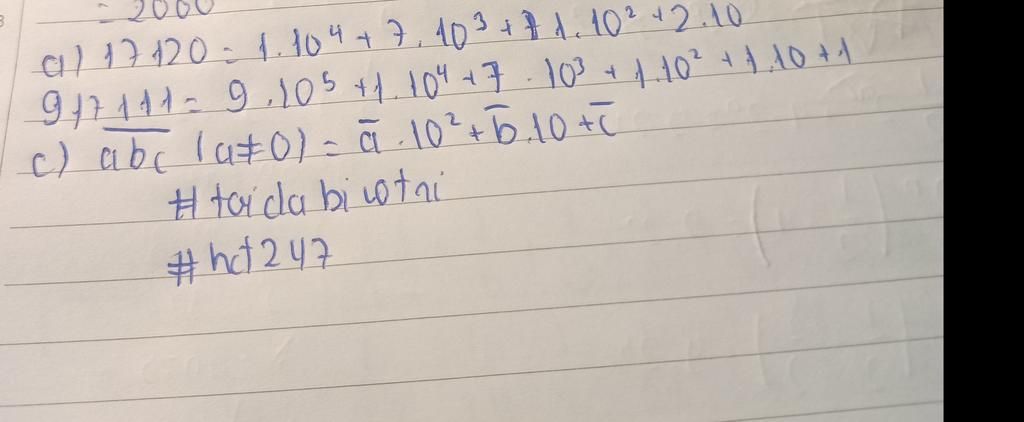 = 2000
a) 17120 = 1.10⁴ + 7.10³ + 1.10² + 2.10
917111 = 9.10⁵ + 1.10⁴ + 7.10³ + 1.10² + 1.10 + 1
c) a̅b̅c̅ (a≠0) = a̅.10² + b̅.10 + c̅
# toi da bi cotni
# hdt247